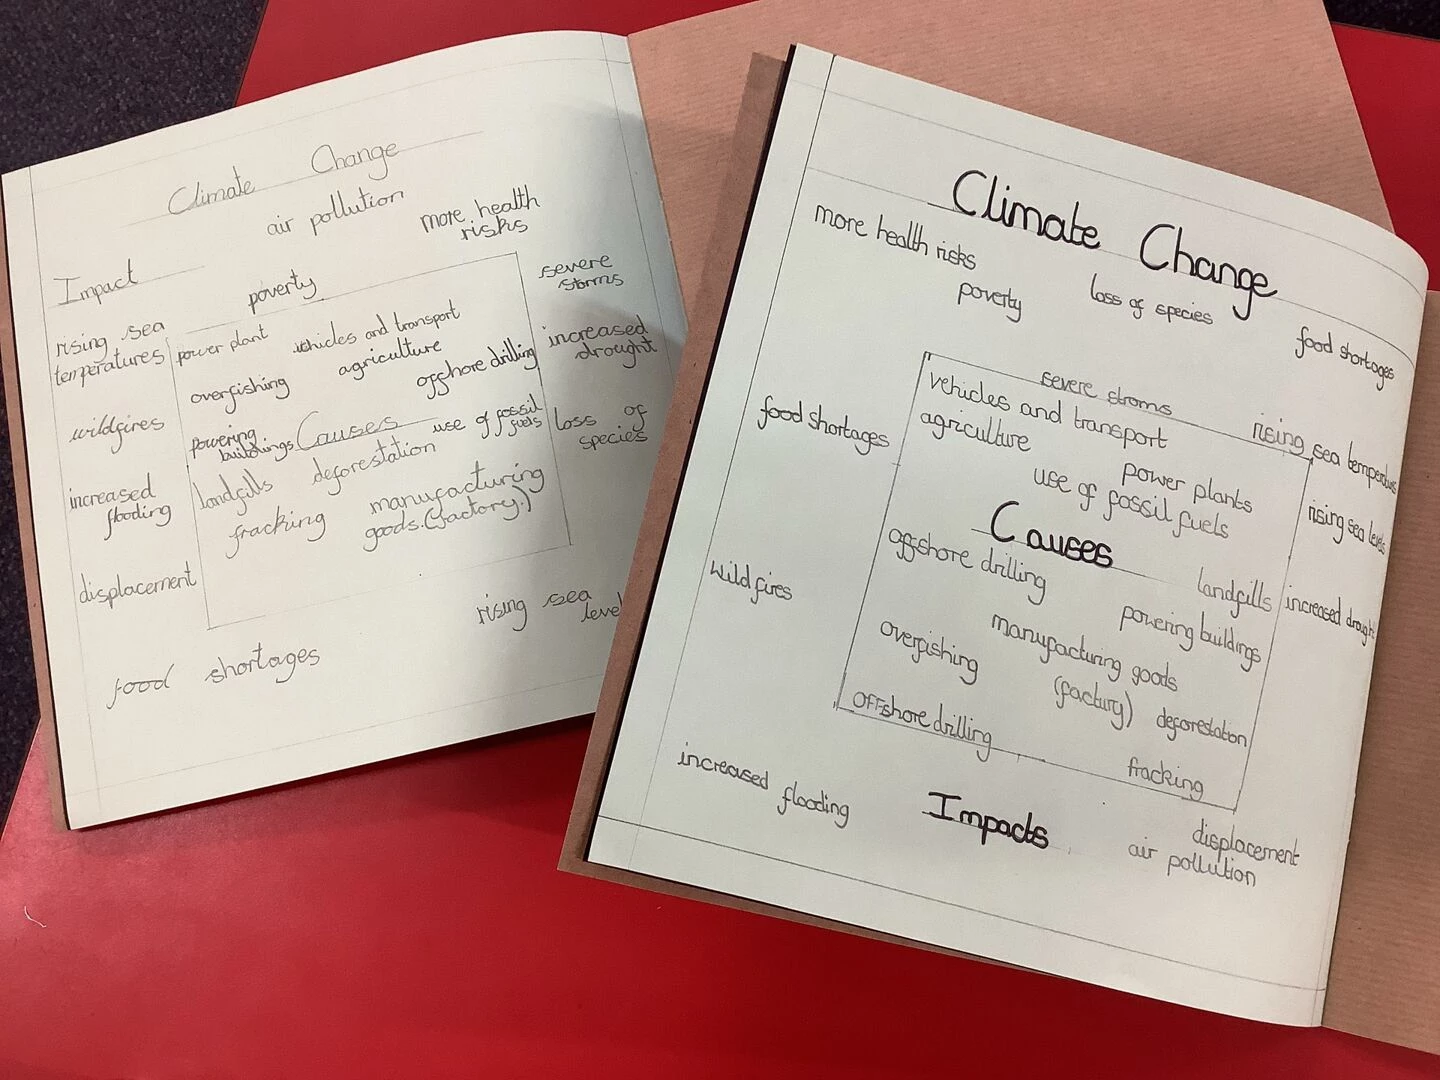 Climate Change
air pollution
more health
risks
Impact
poverty
severe
storms
rising sea
temperatures
power plant
vehicles and transport
agriculture
overfishing
offshore drilling
increased
drought
wildfires
powering
buildings
Causes
use of fossil
fuels
loss of
species
landfills
deforestation
increased
flooding
fracking
manufacturing
goods.(factory.)
displacement
rising sea
level
food shortages
Climate Change
more health risks
poverty
loss of species
food shortages
severe stroms
vehicles and transport
agriculture
food shortages
rising sea temperatures
power plants
use of fossil fuels
rising sea levels
Causes
offshore drilling
landfills
increased drought
wildfires
powering buildings
manufacturing goods
(factury)
overfishing
deforestation
Off-shore drilling
fracking
increased flooding
Impacts
displacement
air pollution